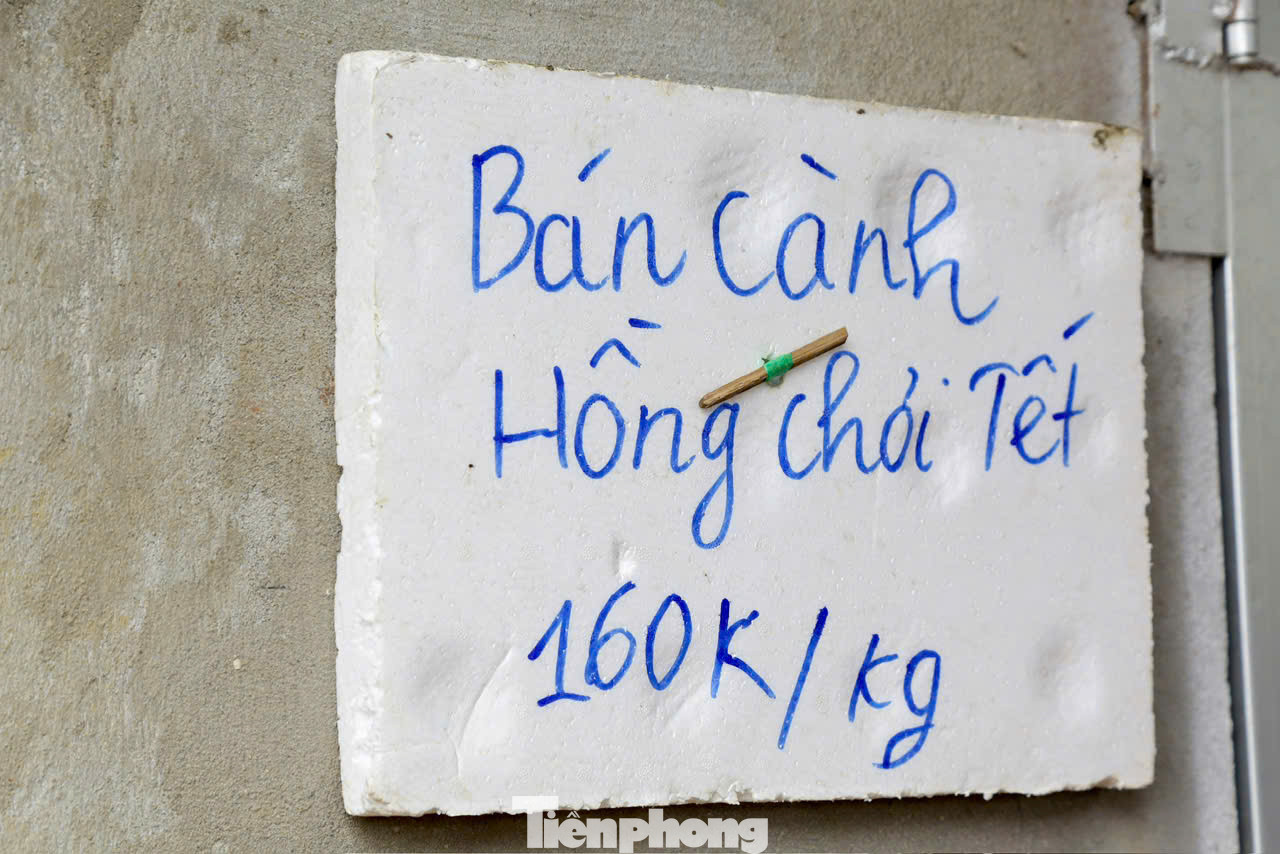 Bán Cành
Hồng chơi Tết
160K/kg
Tiềnphong